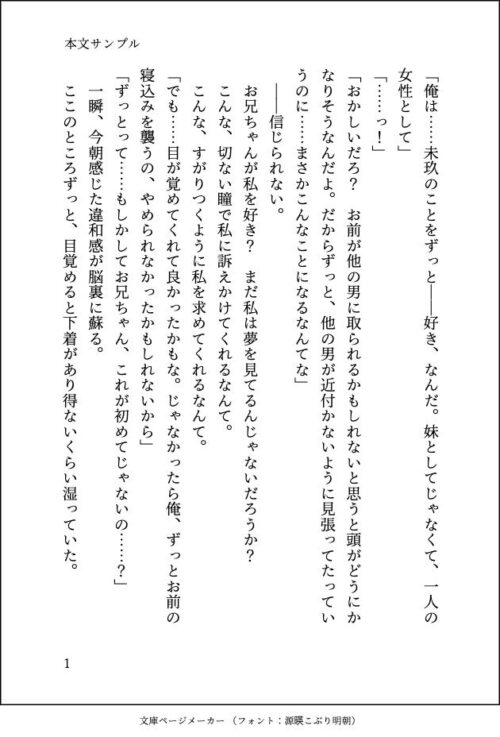 本文サンプル
「俺は……未玖のことをずっと――好き、なんだ。妹としてじゃなくて、一人の
女性として」
「……っ！」
「おかしいだろ？　お前が他の男に取られるかもしれないと思うと頭がどうにか
なりそうなんだよ。だからずっと、他の男が近付かないように見張ってたってい
うのに……まさかこんなことになるなんてな」
――信じられない。
お兄ちゃんが私を好き？　まだ私は夢を見てるんじゃないだろうか？
こんな、切ない瞳で私に訴えかけてくれるなんて。
こんな、すがりつくように私を求めてくれるなんて。
「でも……目が覚めてくれて良かったかもな。じゃなかったら俺、ずっとお前の
寝込みを襲うの、やめられなかったかもしれないから」
「ずっとって……もしかしてお兄ちゃん、これが初めてじゃないの……？」
一瞬、今朝感じた違和感が脳裏に蘇る。
ここのところずっと、目覚めると下着があり得ないくらい湿っていた。
1
文庫ページメーカー（フォント：源暎こぶり明朝）